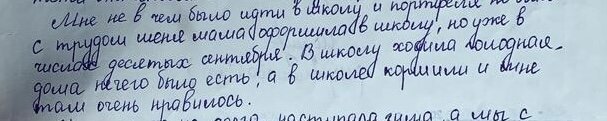 Мне не в чем было идти в школу и портфеля не бы
с трудом меня мама оформила в школу, но уже в
числах десятых сентября. В школу ходила голодная.
дома нечего было есть, а в школе кормили и мне
там очень нравилось.
наступала зима, а мы с